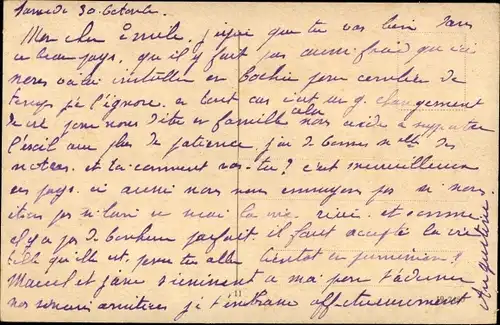 Samedi 30 Octobre
Mon cher Emile, j'espère que tu vas bien dans
ce beau pays, qu'il y fait pas aussi froid qu'ici
nous voici installés en Bochie pour combien de
temps je l'ignore, en tout cas c'est un gd changement
de vie pour nous d'être en famille cela nous aide à supporter
l'exil avec plus de patience, j'ai de bonnes nlles des
nôtres. et toi comment vas-tu? c'est merveilleux
ce pays. ici aussi nous nous ennuyons pas si nous
étions pas si loin ce serait la vie et comme
il y a pas de bonheur parfait. il faut accepter la vie
telle qu'elle est, pour tu allé bientôt en permission?
Marcel et Jane s'unissent à moi pour t'adresser
nos amitiés je t'embrasse affectueusement
Augustine
11